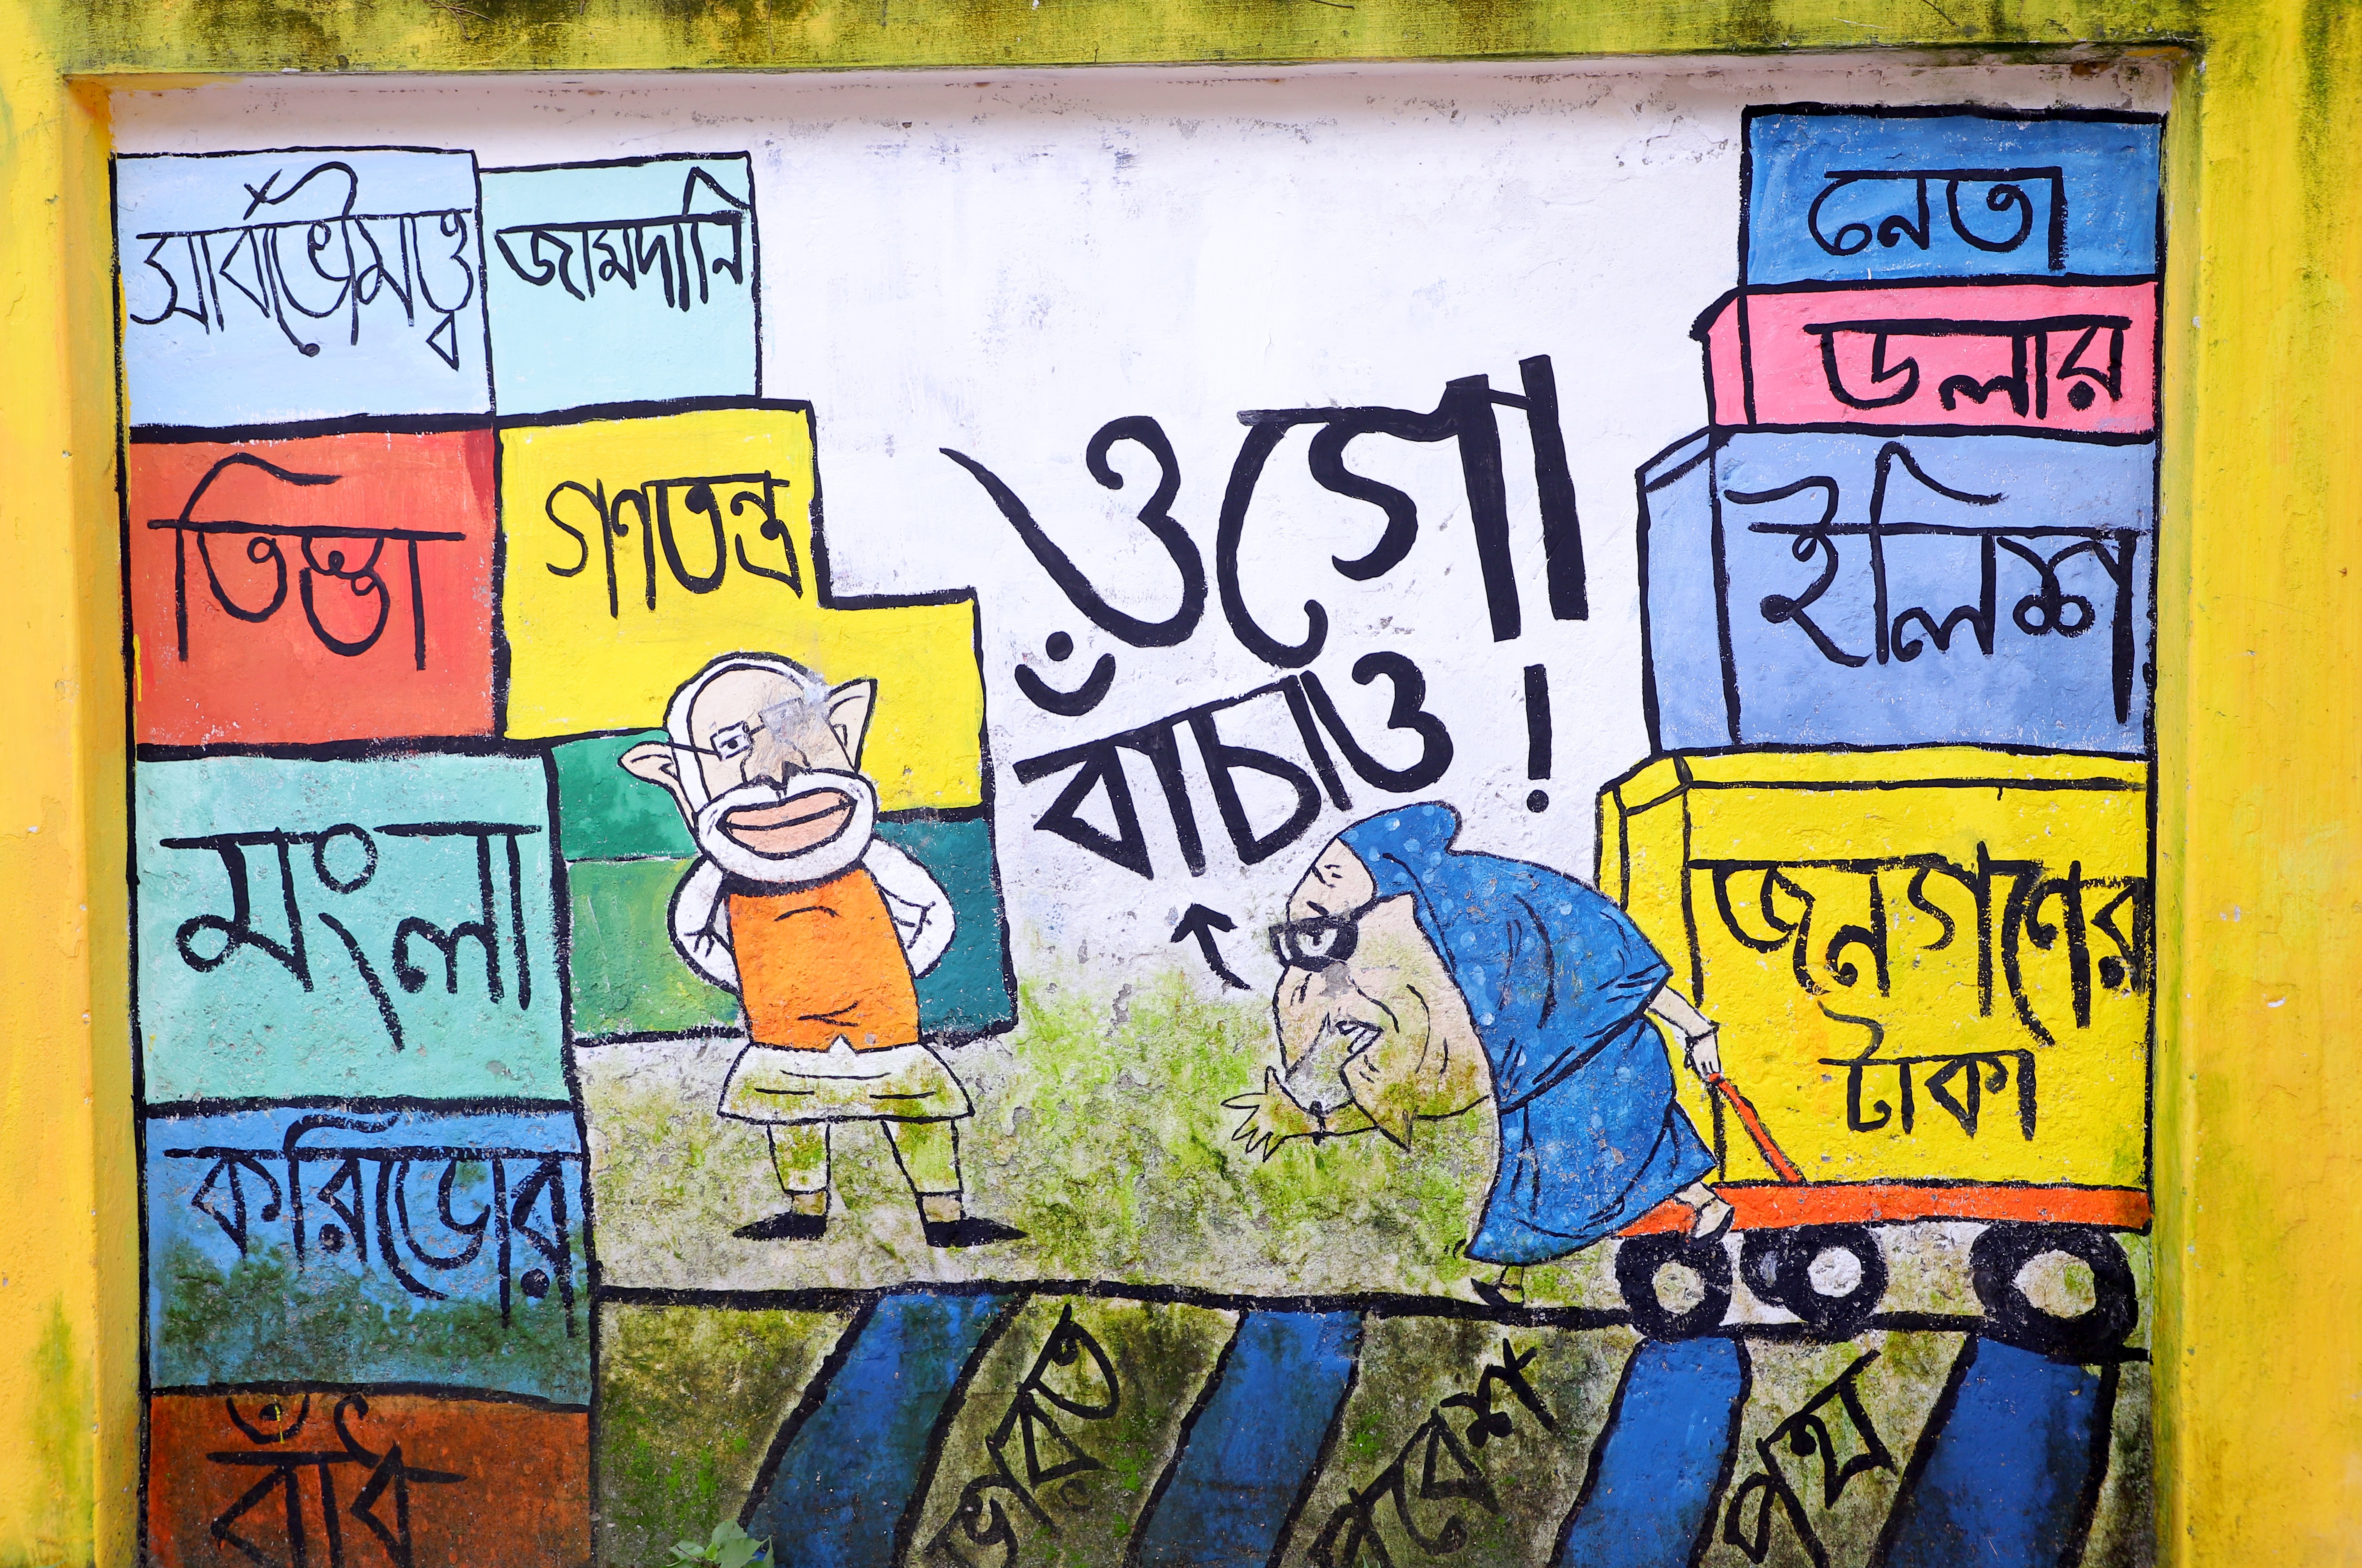 সার্বভৌমত্ব
জামদানি
তিস্তা
গণতন্ত্র
মংলা
করিডোর
বাঁধ
ওগো
বাঁচাও !
নেতা
ডলার
ইলিশ
জনগণের
টাকা
ভারত
প্রবেশ
পথ